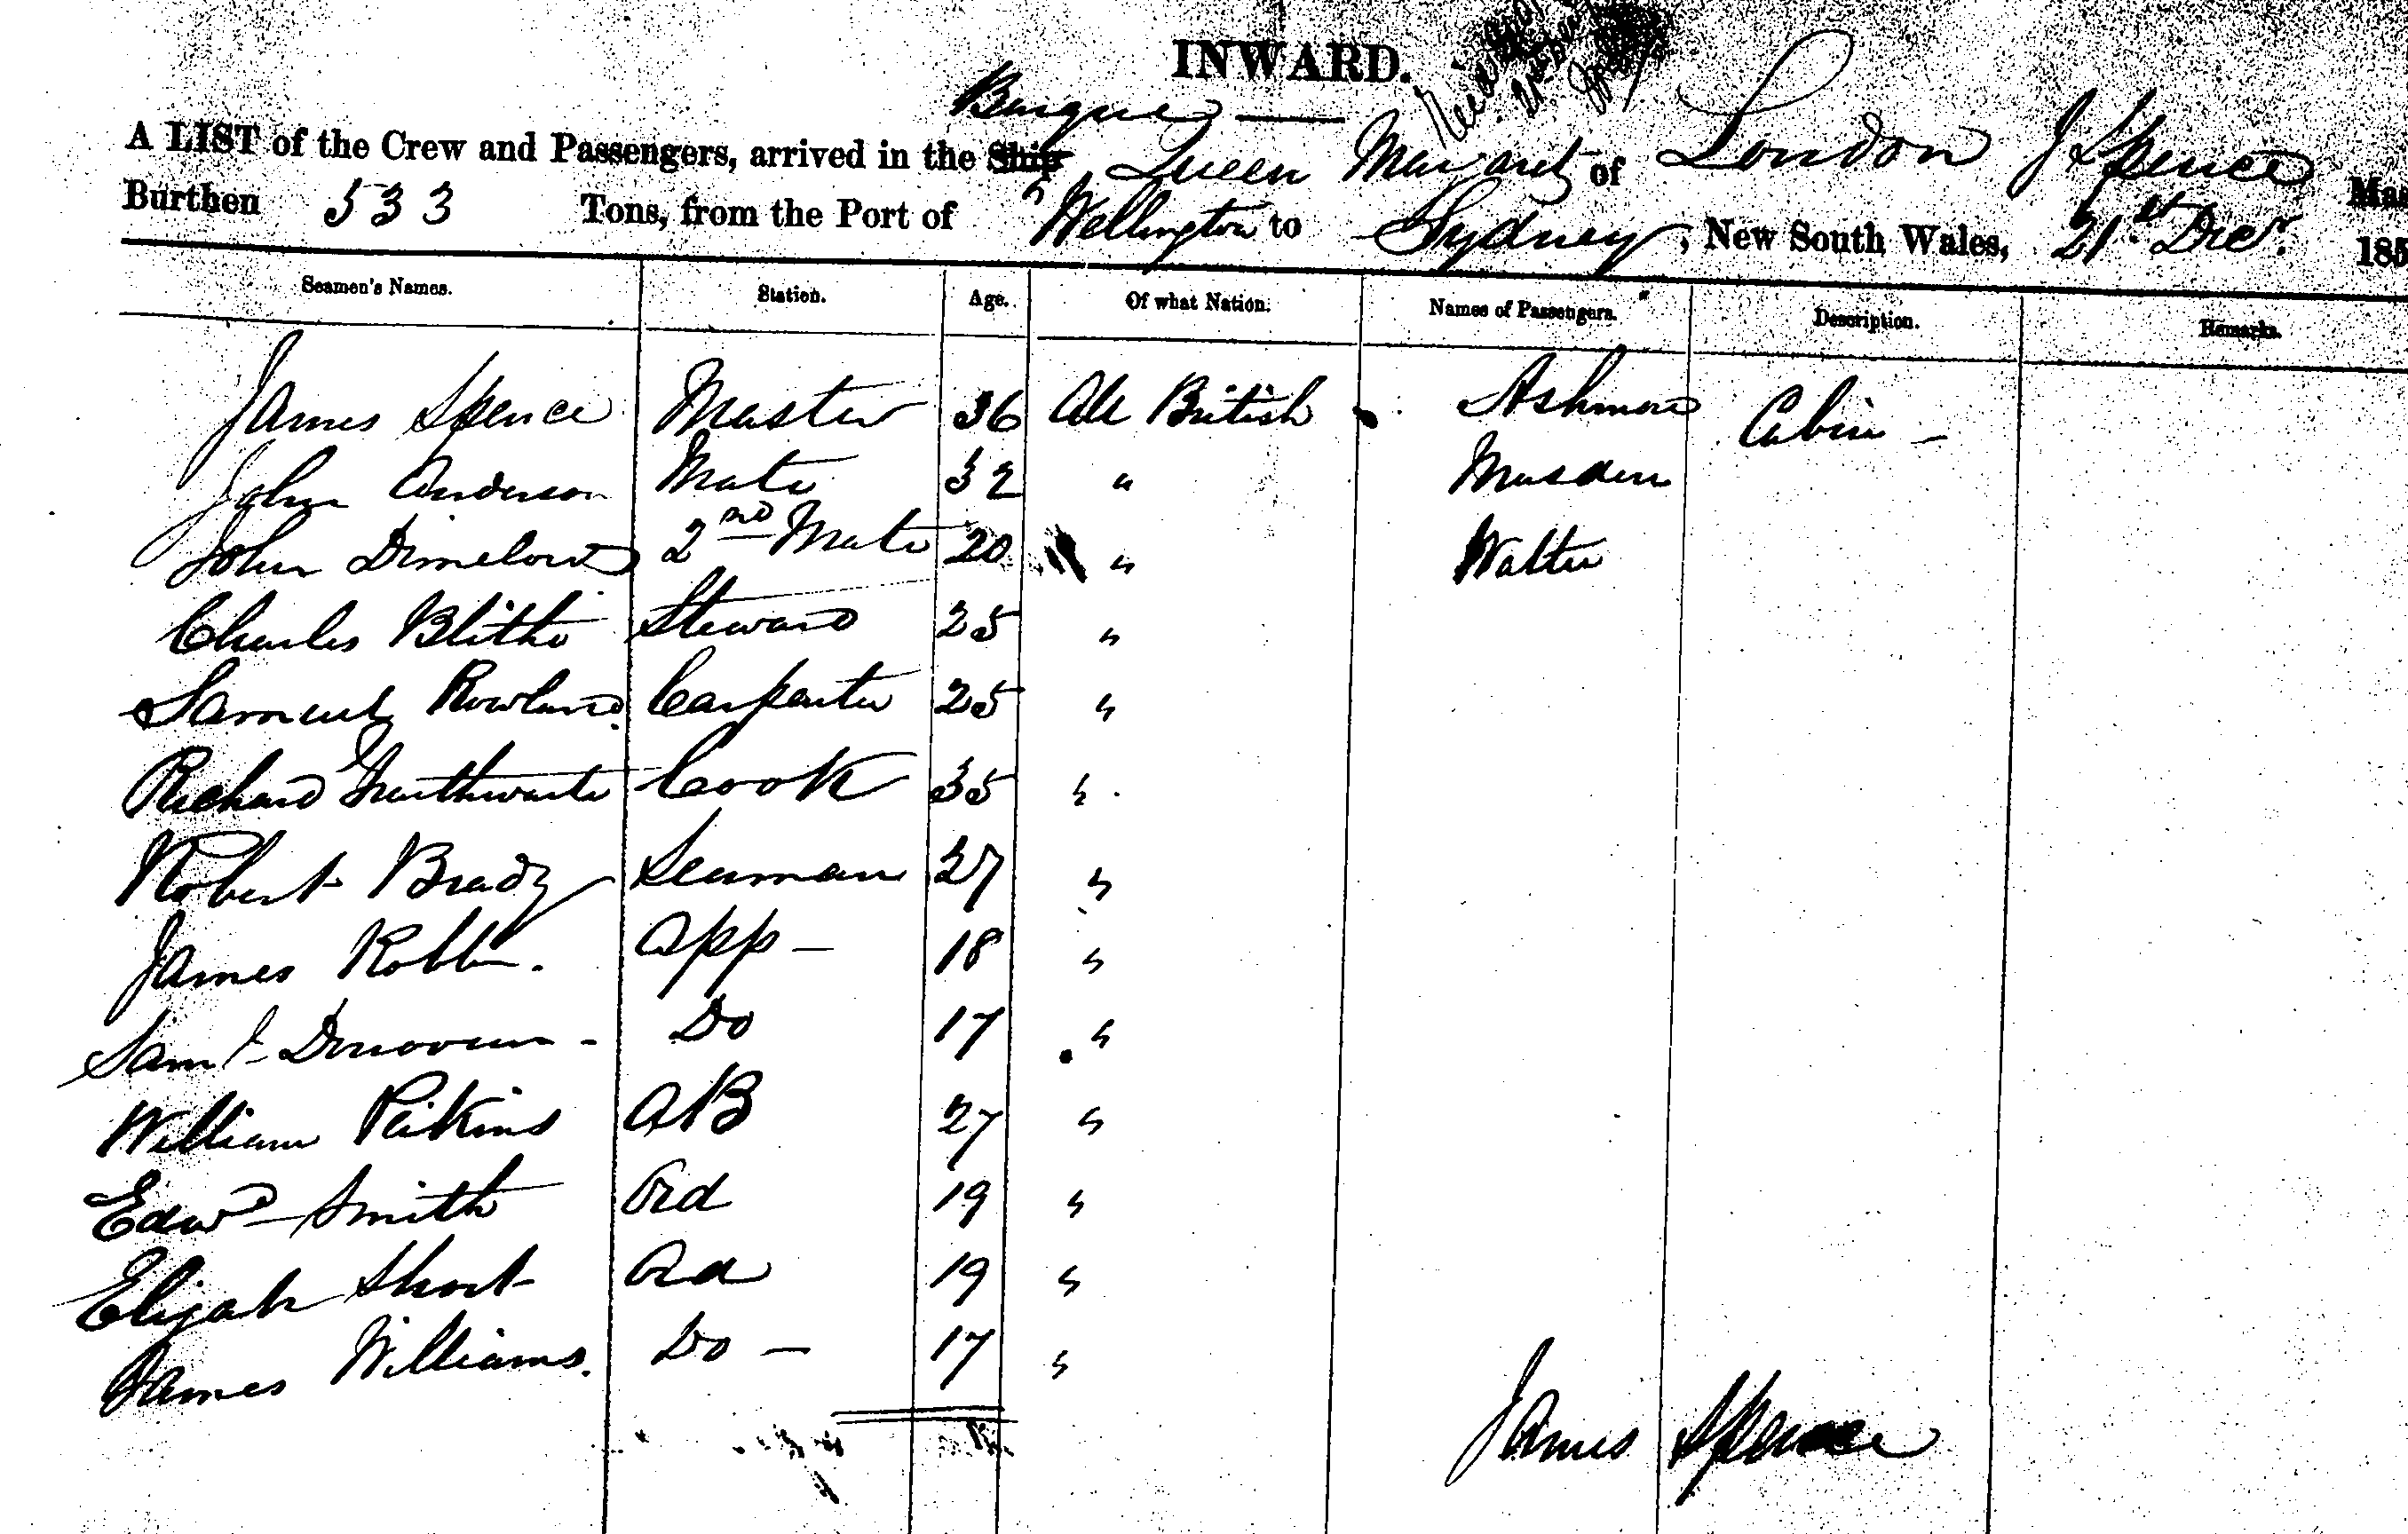 INWARD.
Barque
A LIST of the Crew and Passengers, arrived in the Ship Queen Margaret of London J Spence Mas
Burthen 533 Tons, from the Port of Wellington to Sydney, New South Wales, 21st Decr. 185
Seamen's Names. Station. Age. Of what Nation. Names of Passengers. Description. Remarks.
James Spence Master 36 All British Ashmore Cabin
John Anderson Mate 32 " Marsden
John Dimelow 2nd Mate 20 " Walter
Charles Blithe Steward 25 "
Samuel Rowland Carpenter 25 "
Richard Cook 35 "
Robert Brady Seaman 37 "
James Robb App 18 "
Saml Donovan Do 17 "
William Peikins AB 27 "
Edwd Smith Ord 19 "
Elijah Short Ord 19 "
James Williams. Do 17 "
James Spence